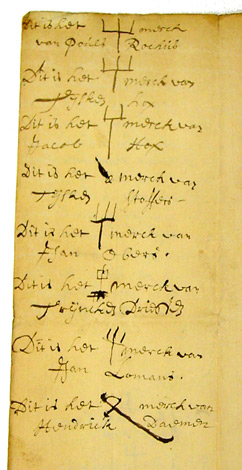 Dit is het merck
van Pouls Rochus
Dit is het merck van
Tijsken
Dit is het merck van
Jacob Hox
Dit is het merck van
Tijsken Stoffers
Dit is het merck van
Jan Obers
Dit is het merck van
Trijncken Driessen
Dit is het merck van
Jan Lomans.
Dit is het merck van
Hendrick Daemen